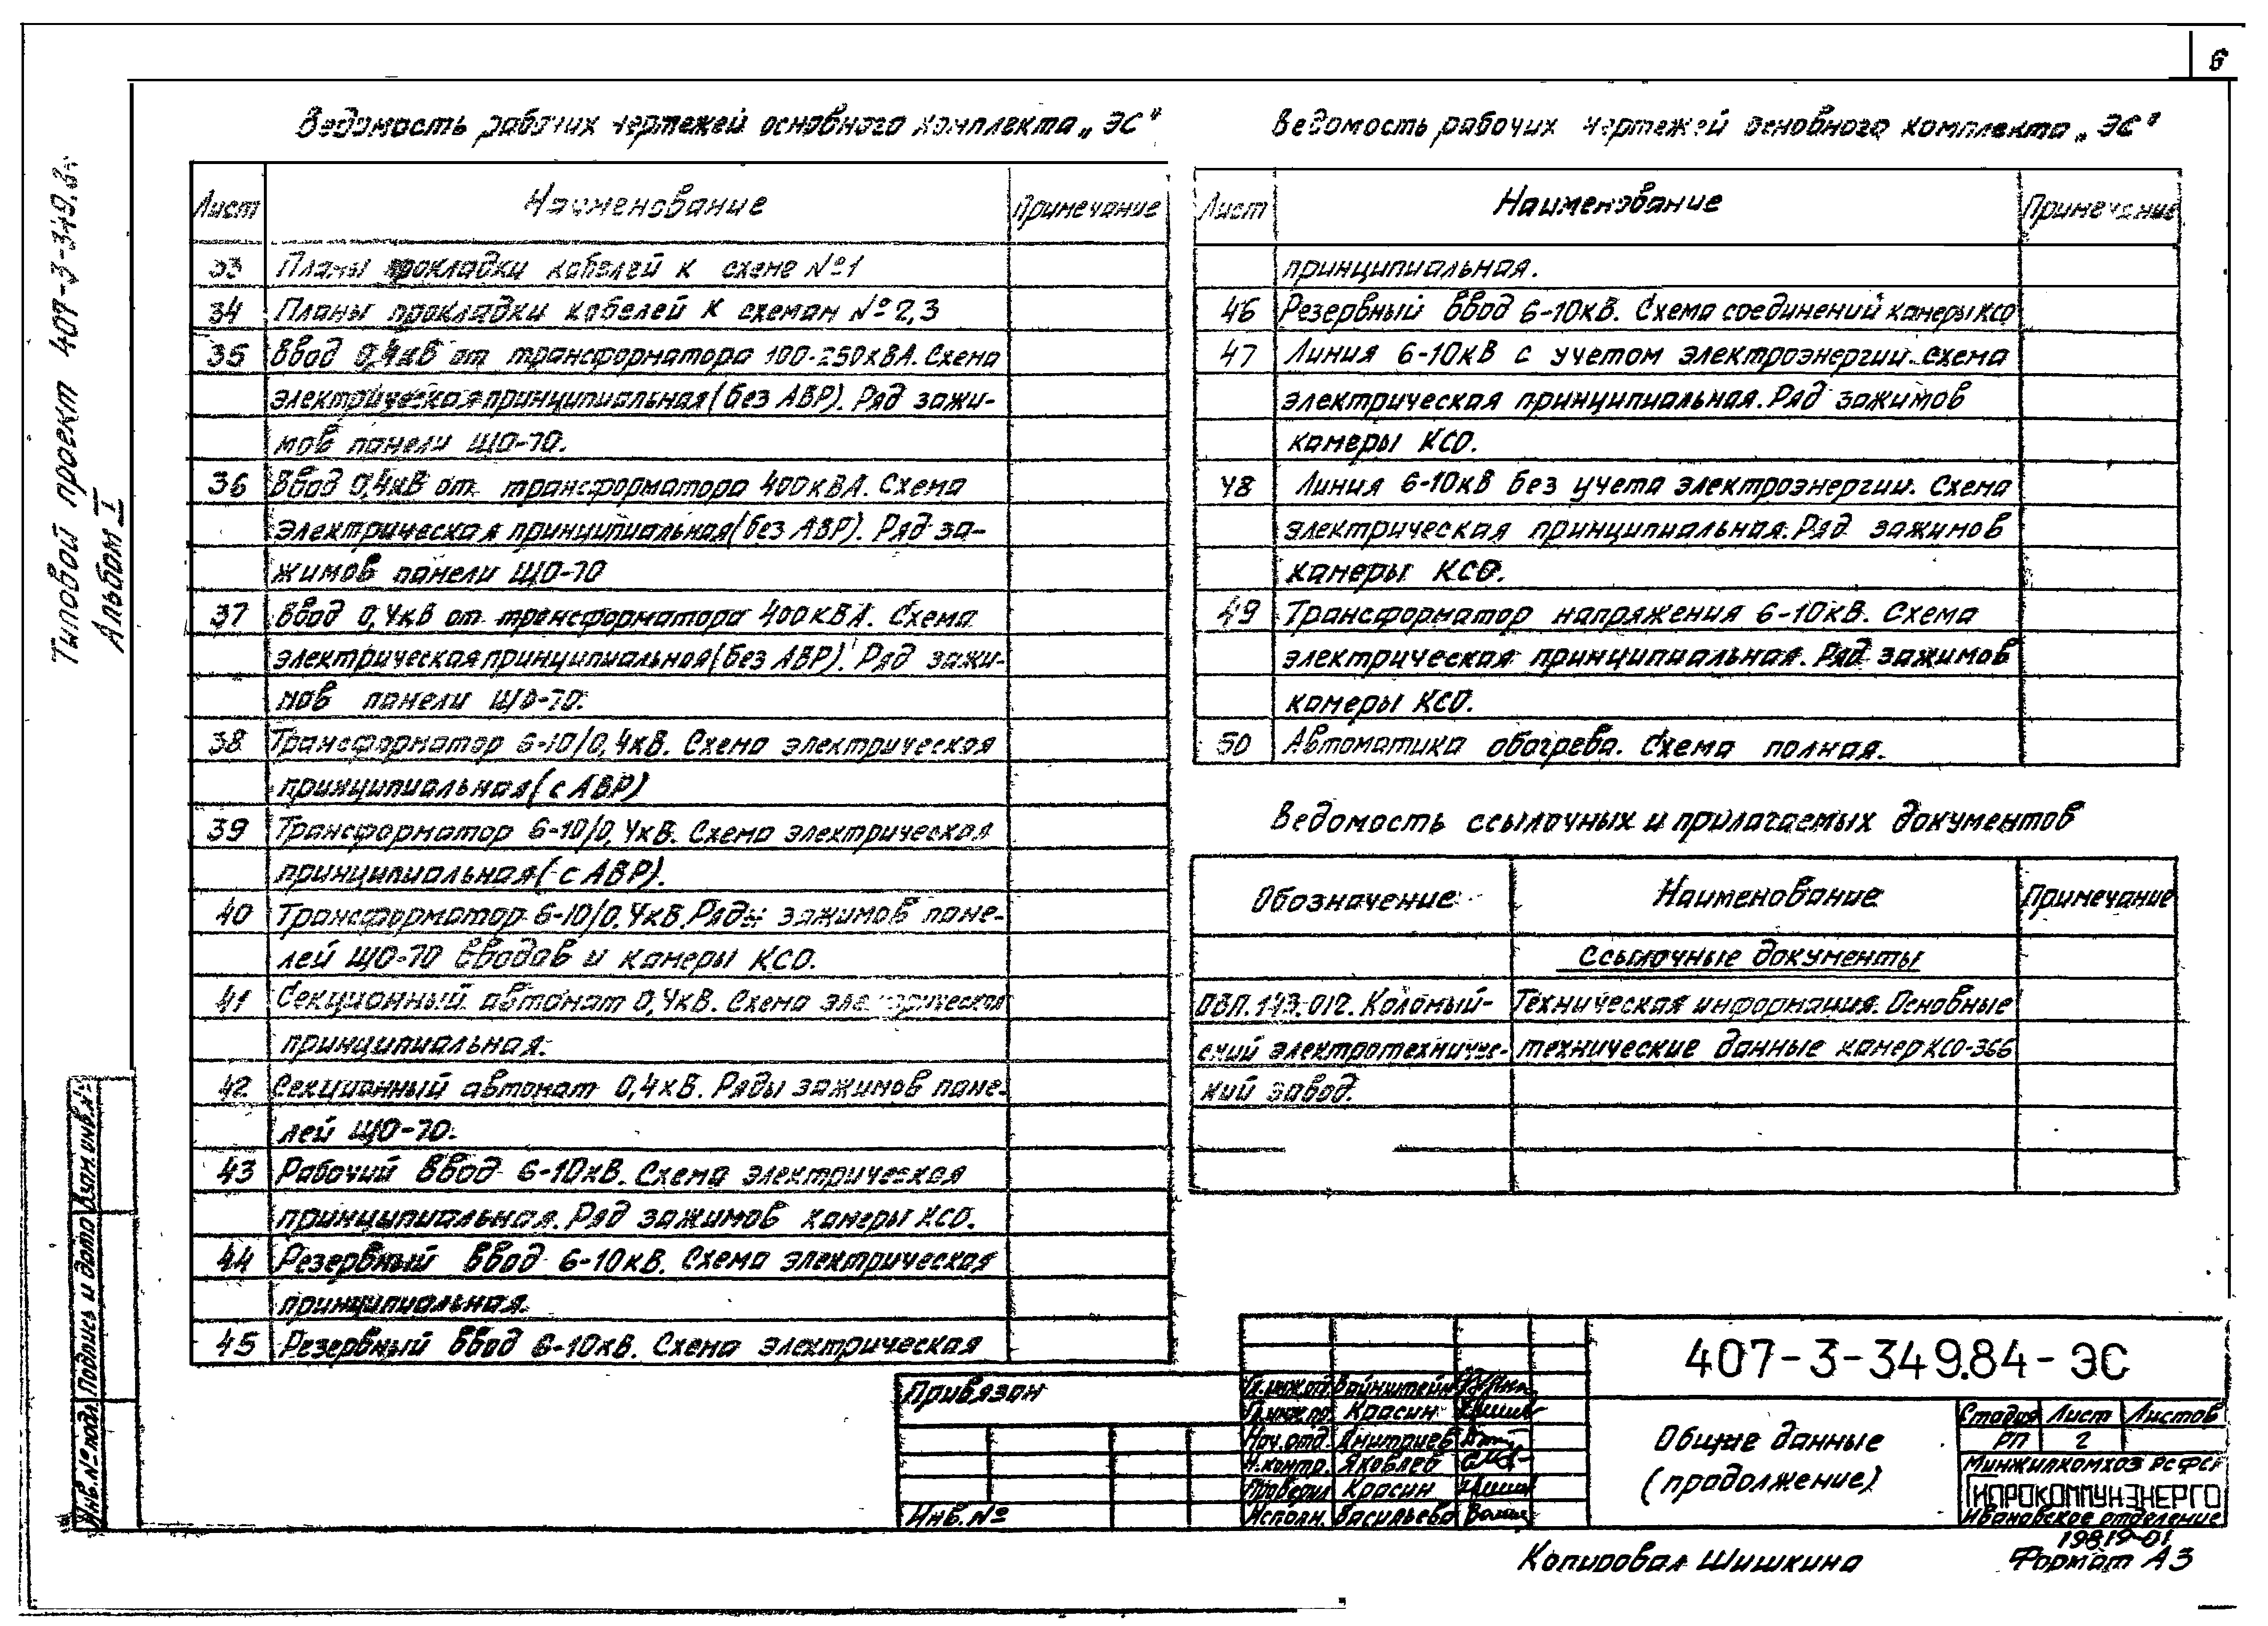 6
Типовой проект 407-3-349.84
Альбом I
Ведомость рабочих чертежей основного комплекта „ЭС"
Лист Наименование Примечание
33 Планы прокладки кабелей к схеме №1
34 Планы прокладки кабелей к схемам №2,3
35 Ввод 0,4кВ от трансформатора 100-250кВА. Схема
электрическая принципиальная (без АВР). Ряд зажи-
мов панели ЩО-70.
36 Ввод 0,4кВ от трансформатора 400кВА. Схема
электрическая принципиальная (без АВР). Ряд за-
жимов панели ЩО-70
37 Ввод 0,4кВ от трансформатора 400кВА. Схема
электрическая принципиальная (без АВР). Ряд зажи-
мов панели ЩО-70.
38 Трансформатор 6-10/0,4кВ. Схема электрическая
принципиальная (с АВР)
39 Трансформатор 6-10/0,4кВ. Схема электрическая
принципиальная (с АВР).
40 Трансформатор 6-10/0,4кВ. Ряды зажимов пане-
лей ЩО-70 вводов и камеры КСО.
41 Секционный автомат 0,4кВ. Схема электрическая
принципиальная.
42 Секционный автомат 0,4кВ. Ряды зажимов пане-
лей ЩО-70.
43 Рабочий ввод 6-10кВ. Схема электрическая
принципиальная. Ряд зажимов камеры КСО.
44 Резервный ввод 6-10кВ. Схема электрическая
принципиальная.
45 Резервный ввод 6-10кВ. Схема электрическая
Ведомость рабочих чертежей основного комплекта „ЭС"
Лист Наименование Примечание
принципиальная.
46 Резервный ввод 6-10кВ. Схема соединений камеры КСО
47 Линия 6-10кВ с учетом электроэнергии. Схема
электрическая принципиальная. Ряд зажимов
камеры КСО.
48 Линия 6-10кВ без учета электроэнергии. Схема
электрическая принципиальная. Ряд зажимов
камеры КСО.
49 Трансформатор напряжения 6-10кВ. Схема
электрическая принципиальная. Ряд зажимов
камеры КСО.
50 Автоматика обогрева. Схема полная.
Ведомость ссылочных и прилагаемых документов
Обозначение Наименование Примечание
Ссылочные документы
ОВЛ.143.012. Коломый- Техническая информация. Основные
ский электротехничес- технические данные камер КСО-366
кий завод.
Взам.инв.№
Подпись и дата
Инв.№ подл.
Привязан
Инв.№
407-3-349.84-ЭС
Гл.инж.отд. Вайнштейн
Гл.инж.пр. Красин
Нач.отд. Дмитриев
Н.контр. Яковлев
Проверил Красин
Исполн. Васильева
Общие данные
(продолжение)
Стадия Лист Листов
РП 2
Минжилкомхоз РСФСР
ГИПРОКОММУНЭНЕРГО
Ивановское отделение
19819-01
Копировал Шишкина
Формат А3